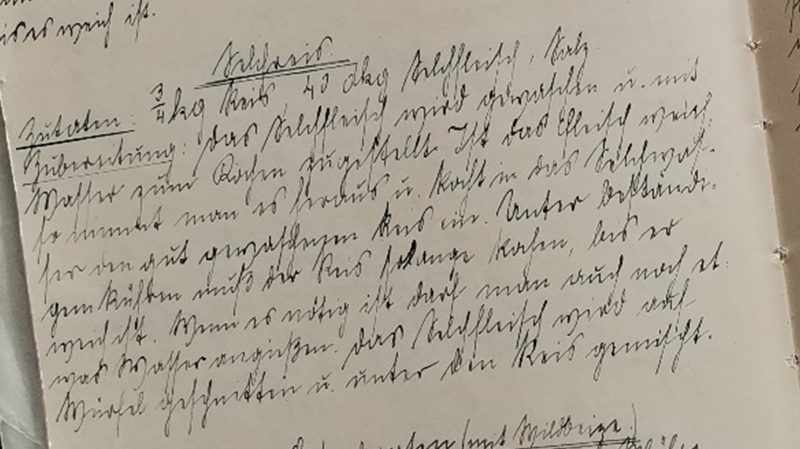 is es weich ist.
Selchreis.
Zutaten: 3/4 kg Reis, 40 dkg Selchfleisch, Salz
Zubereitung: Das Selchfleisch wird gewaschen u. mit
Wasser zum Kochen zugestellt. Ist das Fleisch weich,
so nimmt man es heraus u. kocht in das Selchwas-
ser den gut gewaschenen Reis ein. Unter beständi-
gem Rühren muß der Reis solange kochen, bis er
weich ist. Wenn es nötig ist darf man auch noch et-
was Wasser angießen. Das Selchfleisch wird auf
Würfel geschnitten u. unter den Reis gemischt.
(mit Wildbeize.)